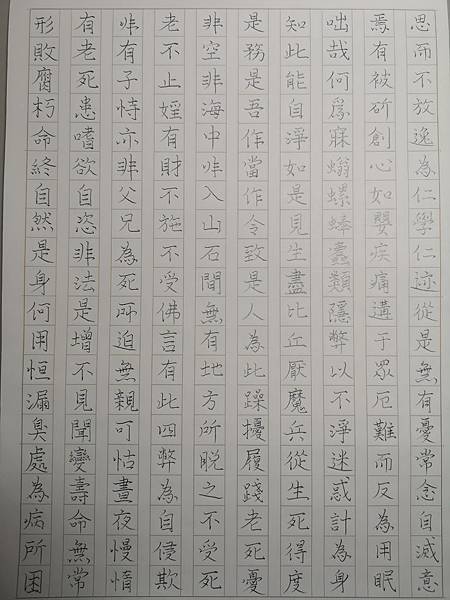 思而不放逸為仁學仁迹從是無有憂常念自滅意
焉有被斫創心如嬰疾痛遘于眾厄難而反為用眠
咄哉何爲寐螉螺蜯蠹類隱弊以不淨迷惑計為身
知此能自淨如是見生盡比丘厭魔兵從生死得度
是務是吾作當作令致是人為此躁擾履踐老死憂
非空非海中非入山石間無有地方所脫之不受死
老不止婬有財不施不受佛言有此四弊為自侵欺
非有子恃亦非父兄為死所迫無親可怙晝夜慢惰
有老死患嗜欲自恣非法是增不見聞變壽命無常
形敗腐朽命終自然是身何用恒漏臭處為病所困